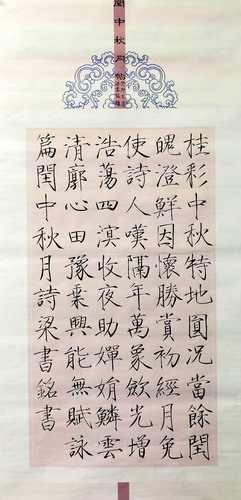 閏中秋月帖
桂彩中秋特地圓況當餘閏
魄澄鮮因懷勝賞初經月免
使詩人嘆隔年萬象斂光增
浩蕩四溟收夜助嬋娟鱗雲
清廓心田豫乘興能無賦詠
篇閏中秋月詩梁書銘書